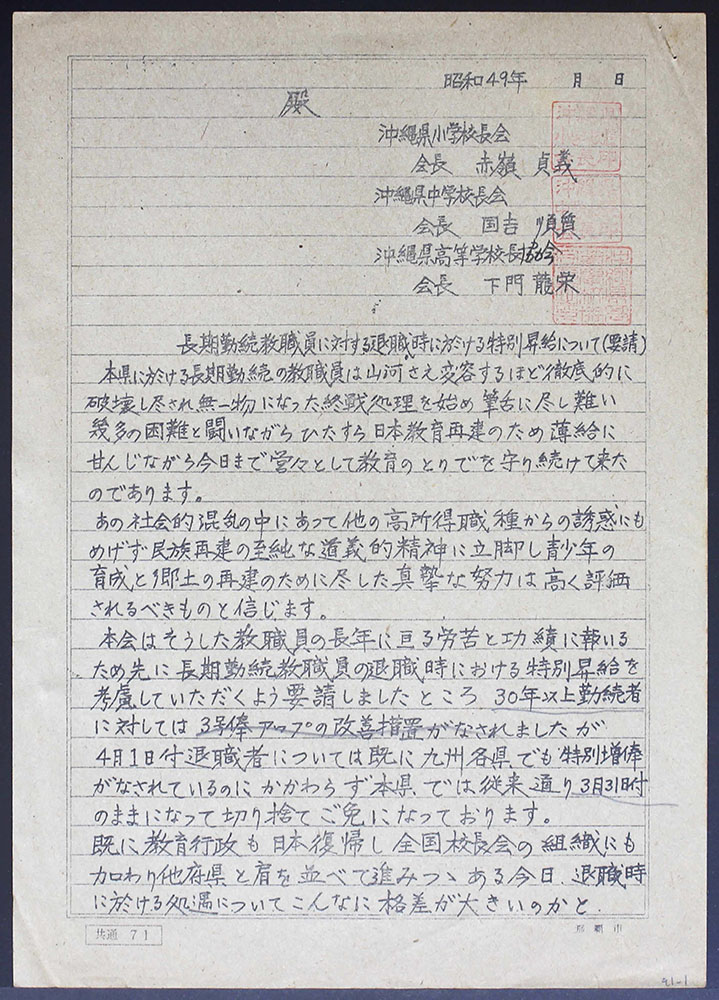 昭和49年　月　日
殿
沖縄県小学校長会
会長　赤嶺　貞義
沖縄県中学校長会
会長　国吉　順質
沖縄県高等学校長協会
会長　下門　龍栄
長期勤続教職員に対する退職時に於ける特別昇給について(要請)
本県に於ける長期勤続の教職員は山河さえ変容するほど徹底的に
破壊し尽され無一物になった終戦処理を始め筆舌に尽し難い
幾多の困難と闘いながらひたすら日本教育再建のため薄給に
甘んじながら今日まで営々として教育のとりでを守り続けて来た
のであります。
あの社会的混乱の中にあって他の高所得職種からの誘惑にも
めげず民族再建の至純な道義的精神に立脚し青少年の
育成と郷土の再建のために尽した真摯な努力は高く評価
されるべきものと信じます。
本会はそうした教職員の長年に亘る労苦と功績に報いる
ため先に長期勤続教職員の退職時における特別昇給を
考慮していただくよう要請しましたところ 30年以上勤続者
に対しては3号俸アップの改善措置がなされましたが
4月1日付退職者については既に九州各県でも特別増俸
がなされているのにかかわらず本県では従来通り3月31日付
のままになって切り捨てご免になっております。
既に教育行政も日本復帰し全国校長会の組織にも
加わり他府県と肩を並べて進みつゝある今日、退職時
に於ける処遇についてこんなに格差が大きいのかと、
共通 71
那覇市
41-1